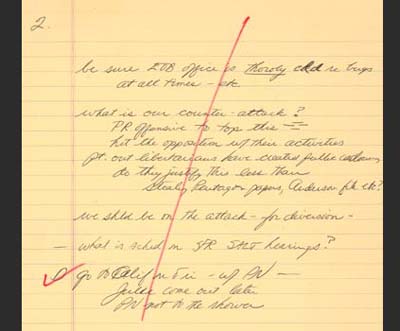 2.
be sure EOB office is thoroly ckd re bugs
at all times - etc.
what is our counter-attack?
PR offensive to top this —
hit the opposition w/ their activities
pt. out libertarians have created public
do they justify this less than
stealing Pentagon papers, Anderson file etc?
we shld be on the attack - for diversion -
- what is sched on SFR SALT hearings?
go to Calif on Fri - w/ PN -
Julie come out later
PN not to the shower